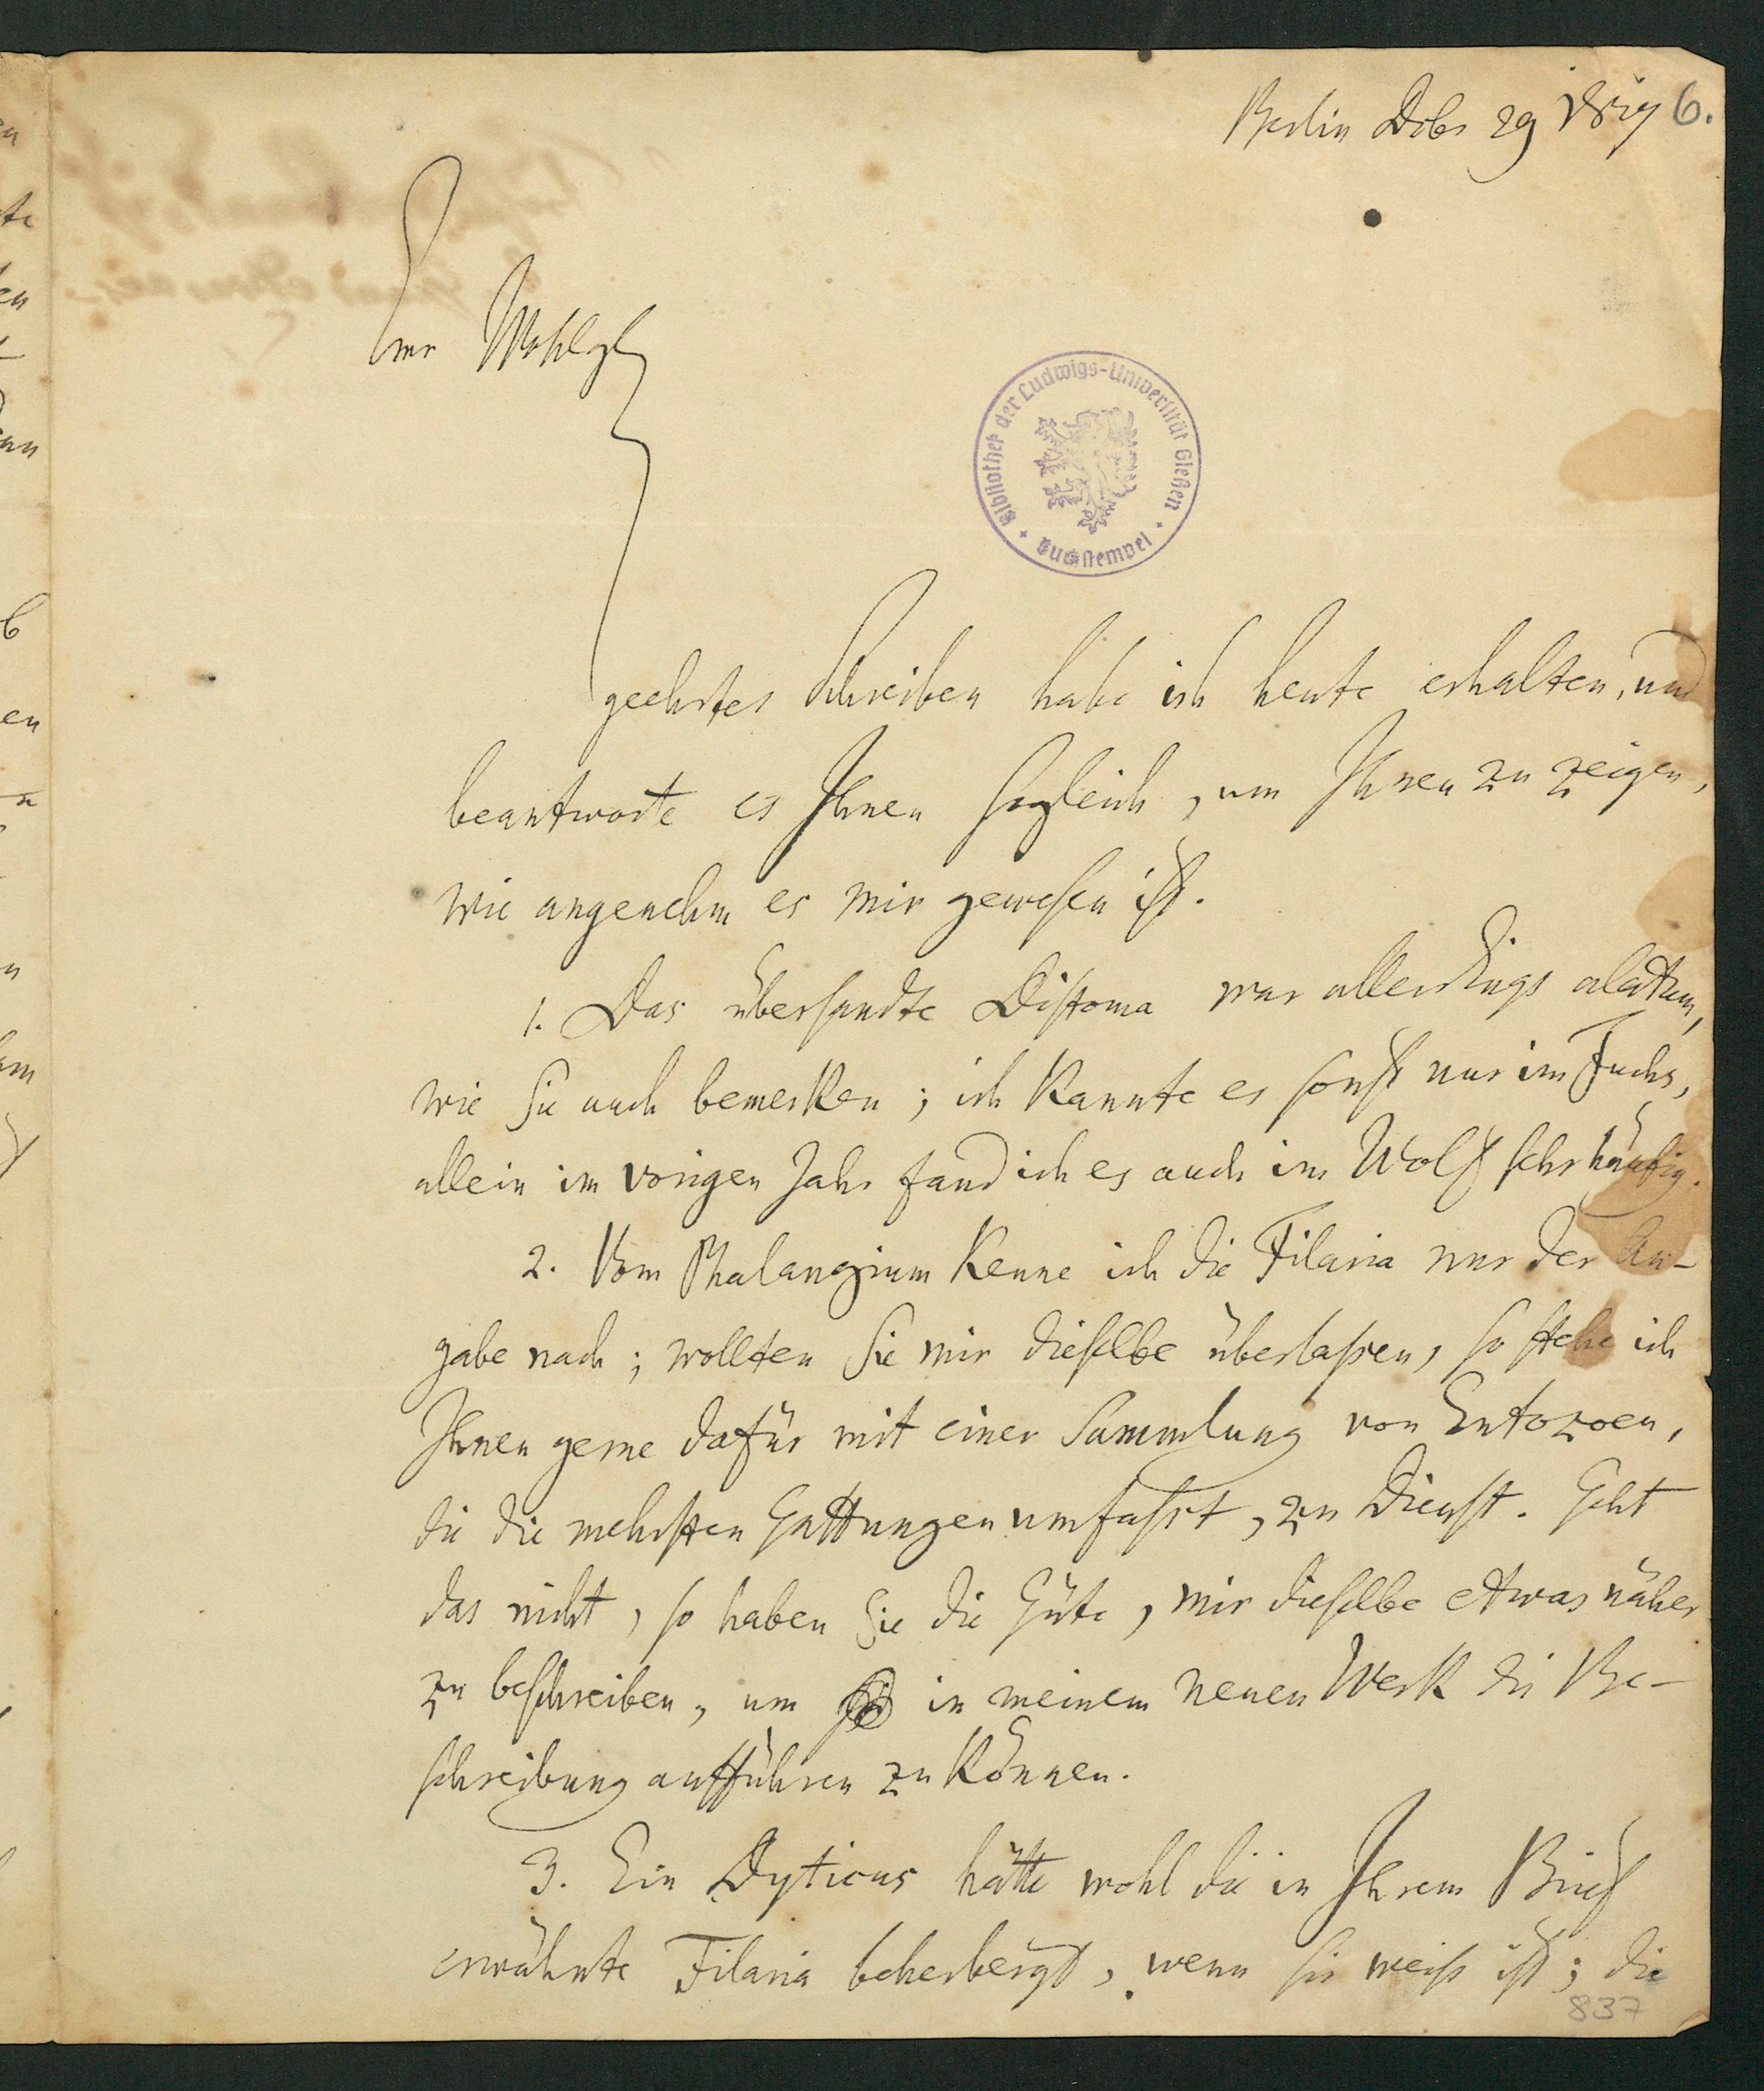 Berlin Dcbr 29 1817 6.
Euer Wohlgb
Bibliothek der Ludwigs-Universität Gießen
Buchstempel
geehrtes Schreiben habe ich heute erhalten, und
beantworte es Ihnen sogleich, um Ihnen zu zeigen,
wie angenehm es mir gewesen ist.
1. Das übersandte Distoma war allerdings alatum,
wie Sie auch bemerken; ich kannte es sonst nur im Fuchs,
allein im vorigen Jahr fand ich es auch im Wolf sehr häufig.
2. Vom Phalangium kenne ich die Filaria nur der An-
gabe nach; wollten Sie mir dieselbe überlassen, so stehe ich
Ihnen gerne dafür mit einer Sammlung von Entozoen,
die die mehrsten Gattungen umfasst, zu Dienst. Geht
das nicht, so haben Sie die Güte, mir dieselbe etwas näher
zu beschreiben, um in meinem neuen Werk die Be-
schreibung aufführen zu können.
3. Ein Dyticus hätte wohl die in Ihrem Brief
erwähnte Filaria beherbergt, wenn sie weiss ist; die
837